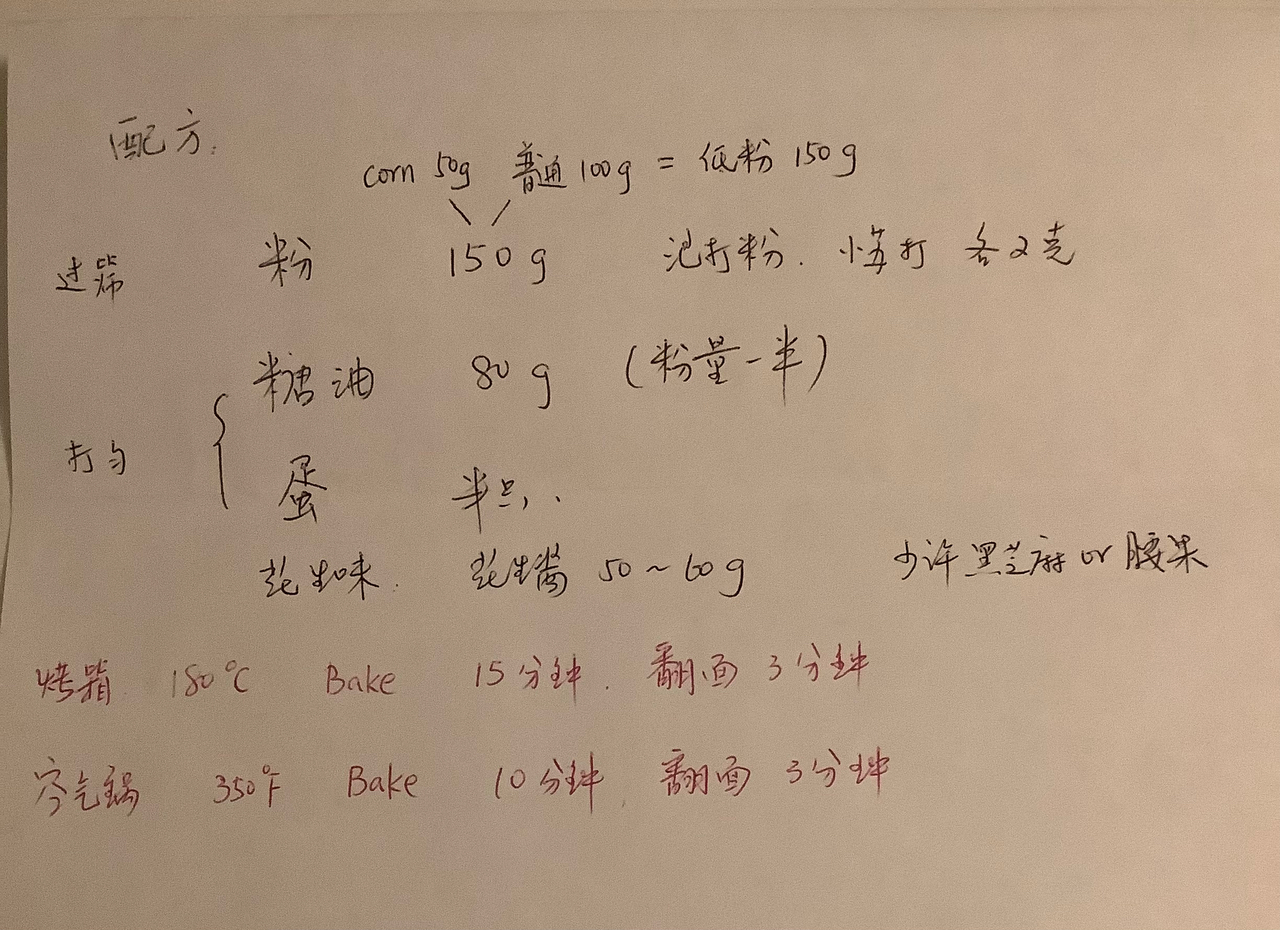 配方:
corn 50g 普通100g = 低粉150g
过筛 粉 150g 泡打粉. 小苏打 各2克
糖油 80g (粉量一半)
打匀
蛋 半只,.
花生味. 花生酱 50~60g 少许黑芝麻 or 腰果
烤箱 180℃ Bake 15分钟. 翻面 3分钟
空气锅 350°F Bake 10分钟, 翻面 3分钟